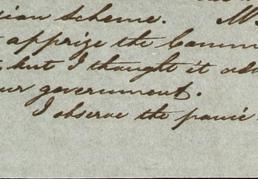 ian Scheme. M
apprize the Comm
but I thought it adv
our government.
I observe the panic